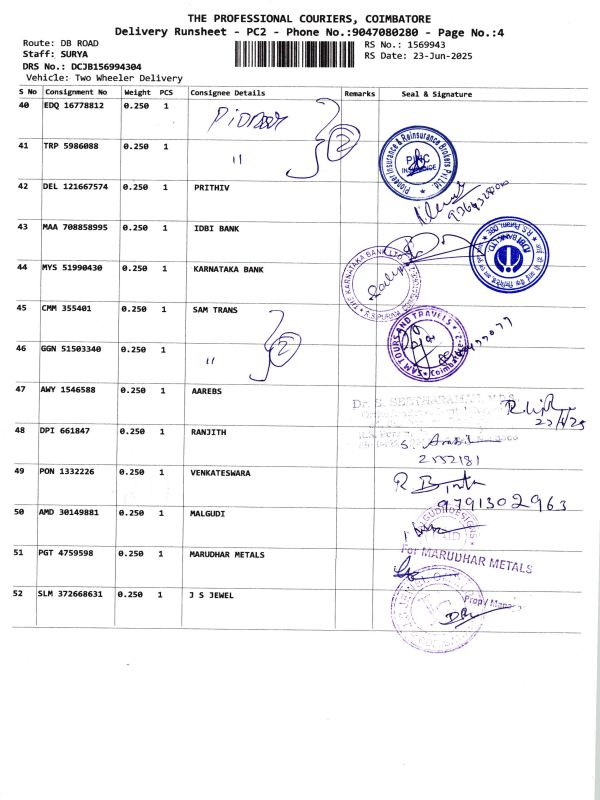 THE PROFESSIONAL COURIERS, COIMBATORE
Delivery Runsheet - PC2 - Phone No.:9047080280 - Page No.:4
Route: DB ROAD
RS No.: 1569943
Staff: SURYA
RS Date: 23-Jun-2025
DRS No.: DCJB156994304
Vehicle: Two Wheeler Delivery
S No Consignment No Weight PCS Consignee Details Remarks Seal & Signature
40 EDQ 16778812 0.250 1 Pioneer 2
41 TRP 5986088 0.250 1 "
Pioneer Insurance & Reinsurance Brokers Pvt.Ltd.
42 DEL 121667574 0.250 1 PRITHIV
43 MAA 708858995 0.250 1 IDBI BANK
IDBI BANK LTD
R.S. Puram, CBE
44 MYS 51990430 0.250 1 KARNATAKA BANK
THE KARNATAKA BANK LTD.
R.S PURAM
45 CMM 355401 0.250 1 SAM TRANS 2
SAM TOURS AND TRAVELS
Coimbatore-2
46 GGN 51503340 0.250 1 "
47 AWY 1546588 0.250 1 AAREBS
48 DPI 661847 0.250 1 RANJITH
2552181
49 PON 1332226 0.250 1 VENKATESWARA
9791302963
50 AMD 30149881 0.250 1 MALGUDI
51 PGT 4759598 0.250 1 MARUDHAR METALS
For MARUDHAR METALS
52 SLM 372668631 0.250 1 J S JEWEL